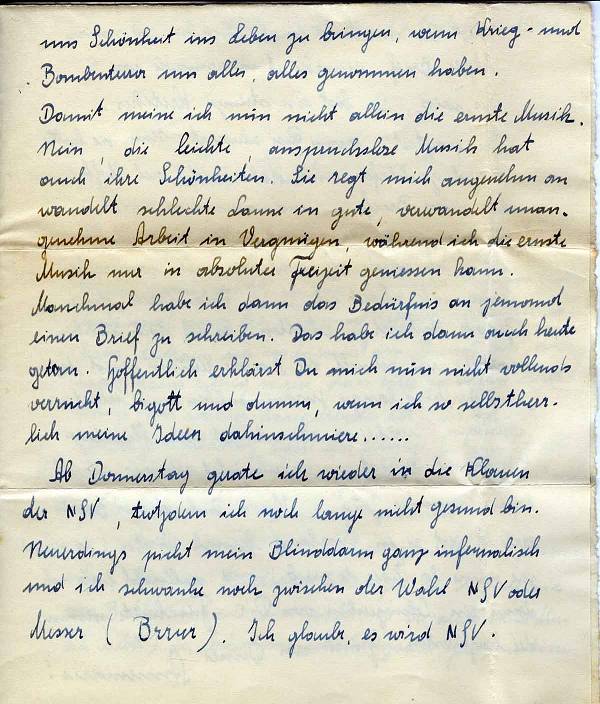 uns Schönheit ins Leben zu bringen, wenn Krieg- und
Bombenterror uns alles, alles genommen haben.
Damit meine ich nun nicht allein die ernste Musik.
Nein, die leichte, anspruchslose Musik hat
auch ihre Schönheiten. Sie regt mich angenehm an
wandelt schlechte Laune in gute, verwandelt unan-
genehme Arbeit in Vergnügen, während ich die ernste
Musik nur in absoluter Freizeit geniessen kann.
Manchmal habe ich dann das Bedürfnis an jemand
einen Brief zu schreiben. Das habe ich dann auch heute
getan. Hoffentlich erklärst Du mich nun nicht vollends
verrückt, bigott und dumm, wenn ich so selbstherr-
lich meine Ideen dahinschmiere......
Ab Donnerstag gerate ich wieder in die Klauen
der NSV, trotzdem ich noch lange nicht gesund bin.
Neuerdings pickt mein Blinddarm ganz infernalisch
und ich schwanke noch zwischen der Wahl NSV oder
Messer (Brrrr). Ich glaube, es wird NSV.